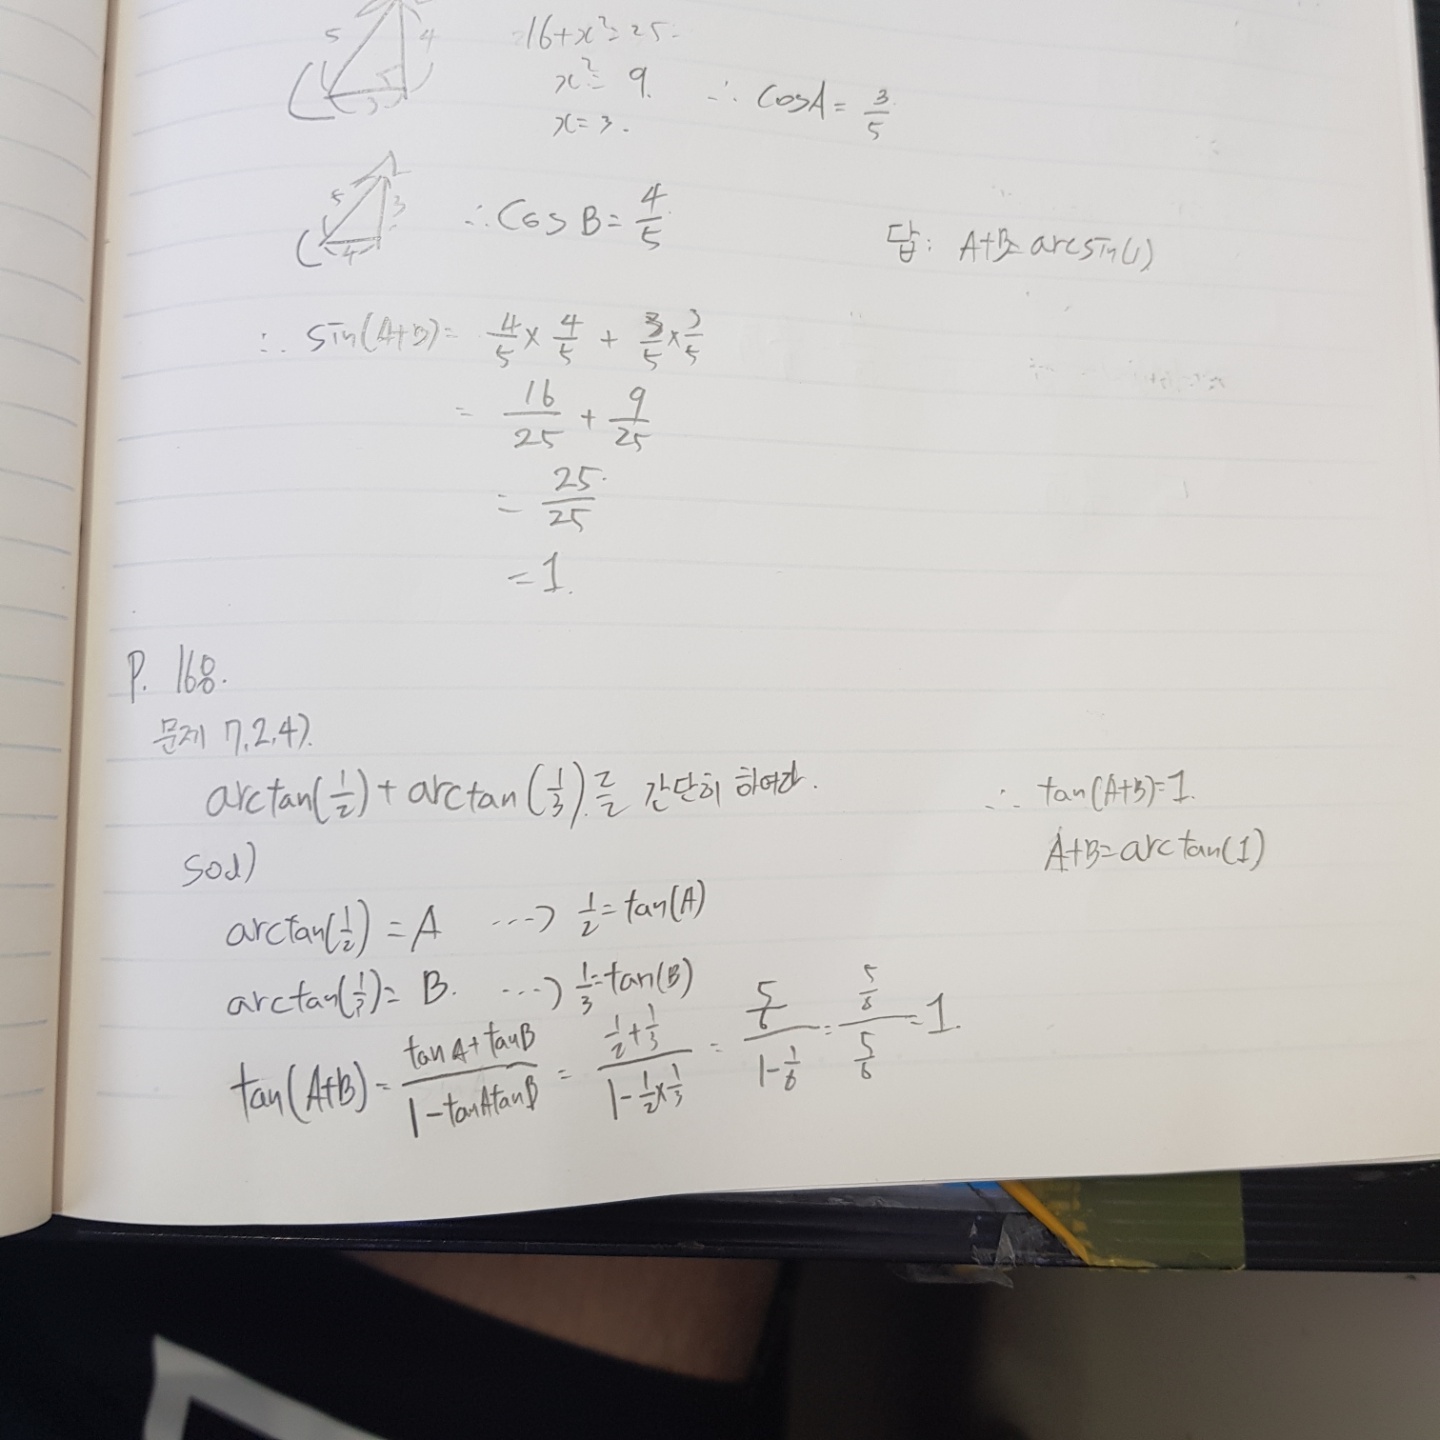 5 4 3
16+x²=25.
x²=9.
x=3.
∴ cosA = 3/5
5 3 4
∴ cosB = 4/5
답: A+B=arcsin(1)
∴ sin(A+B) = 4/5 × 4/5 + 3/5 × 3/5
= 16/25 + 9/25
= 25/25
= 1.
P. 168.
문제 7.2.4).
arctan(1/2) + arctan(1/3).를 간단히 하여라.
Sol)
arctan(1/2) = A ...→ 1/2 = tan(A)
arctan(1/3) = B. ...→ 1/3 = tan(B)
tan(A+B) = (tanA + tanB)/(1 - tanAtanB) = (1/2 + 1/3)/(1 - 1/2 × 1/3) = (5/6)/(1 - 1/6) = (5/6)/(5/6) = 1.
∴ tan(A+B)=1.
A+B=arctan(1)